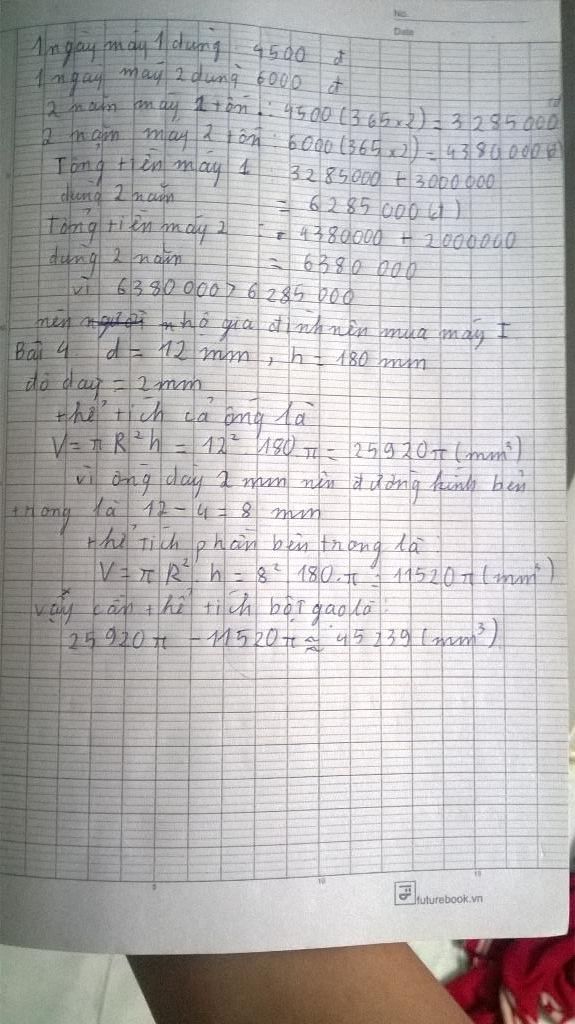 No.
Date
1 ngày máy 1 dùng 4500 đ
1 ngày máy 2 dùng 6000 đ
2 năm máy 1 tốn : 4500(365×2) = 3285000 đ
2 năm máy 2 tốn : 6000(365×2) = 4380000 đ
Tổng tiền máy 1 : 3285000 + 3000000
dùng 2 năm = 6285000 (1)
tổng tiền máy 2 : = 4380000 + 2000000
dùng 2 năm = 6380 000
vì 6380 000 > 6285 000
nên nhà gia đình nên mua máy I
Bài 4 d = 12 mm, h = 180 mm
độ dày = 2mm
thể tích cả ống là
V = π R² h = 12² 180 π = 25920π (mm³)
vì ống dày 2 mm nên đường kính bên
trong là 12 - 4 = 8 mm
thể tích phần bên trong là:
V = π R² . h = 8² 180.π = 11520π (mm³)
vậy cần thể tích bột gạo là:
25920π - 11520π ≈ 45239 (mm³)
9 10 15
futurebook.vn